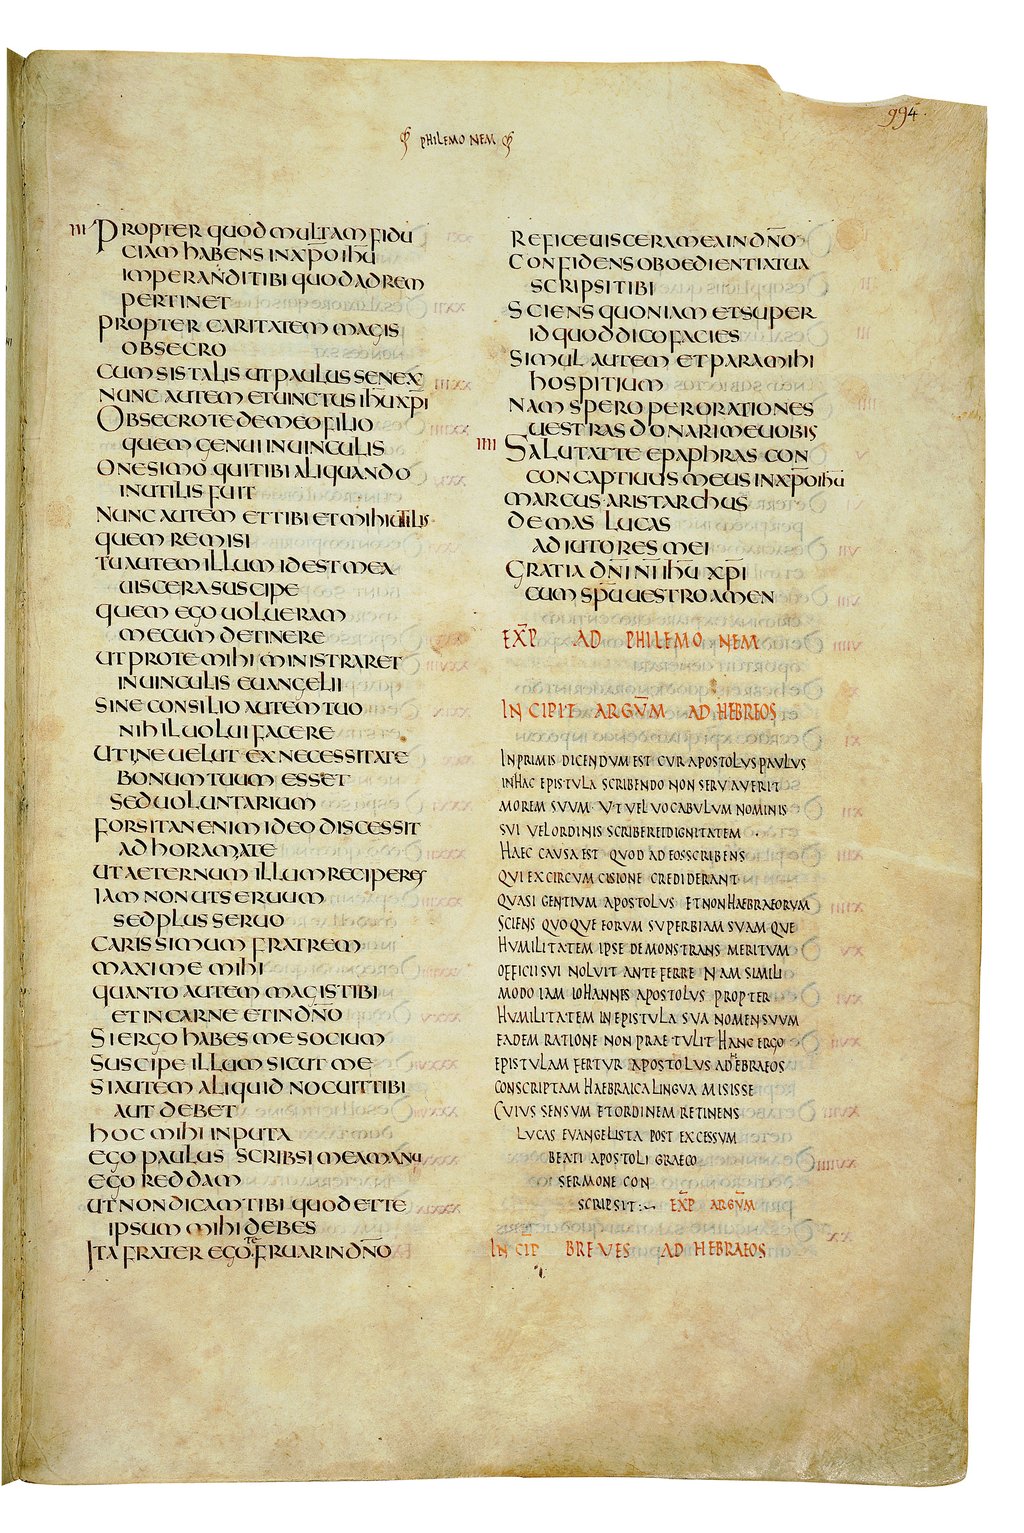 994
PHILEMONEM
III PROPTER QUOD MULTAM FIDU
CIAM HABENS IN XP̄O IHŪ
IMPERANDI TIBI QUOD AD REM
PERTINET
PROPTER CARITATEM MAGIS
OBSECRO
CUM SIS TALIS UT PAULUS SENEX
NUNC AUTEM ET UINCTUS IHŪ XP̄I
OBSECRO TE DE MEO FILIO
QUEM GENUI IN UINCULIS
ONESIMO QUI TIBI ALIQUANDO
INUTILIS FUIT
NUNC AUTEM ET TIBI ET MIHI UTILIS
QUEM REMISI
TU AUTEM ILLUM ID EST MEA
UISCERA SUSCIPE
QUEM EGO UOLUERAM
MECUM DETINERE
UT PRO TE MIHI MINISTRARET
IN UINCULIS EUANGELII
SINE CONSILIO AUTEM TUO
NIHIL UOLUI FACERE
UTI NE UELUT EX NECESSITATE
BONUM TUUM ESSET
SED UOLUNTARIUM
FORSITAN ENIM IDEO DISCESSIT
AD HORAM A TE
UT AETERNUM ILLUM RECIPERES
IAM NON UT SERUUM
SED PLUS SERUO
CARISSIMUM FRATREM
MAXIME MIHI
QUANTO AUTEM MAGIS TIBI
ET IN CARNE ET IN DN̄O
SI ERGO HABES ME SOCIUM
SUSCIPE ILLUM SICUT ME
SI AUTEM ALIQUID NOCUIT TIBI
AUT DEBET
HOC MIHI INPUTA
EGO PAULUS SCRIBSI MEA MANU
EGO REDDAM
UT NON DICAM TIBI QUOD ET TE
IPSUM MIHI DEBES
ITA FRATER EGO TE FRUAR IN DN̄O
REFICE UISCERA MEA IN DN̄O
CONFIDENS OBOEDIENTIA TUA
SCRIPSI TIBI
SCIENS QUONIAM ET SUPER
ID QUOD DICO FACIES
SIMUL AUTEM ET PARA MIHI
HOSPITIUM
NAM SPERO PER ORATIONES
UESTRAS DONARI ME UOBIS
IIII SALUTAT TE EPAPHRAS CON
CONCAPTIUUS MEUS IN XP̄O IHŪ
MARCUS ARISTARCHUS
DEMAS LUCAS
ADIUTORES MEI
GRATIA DN̄I N̄I IHŪ XP̄I
CUM SPŪ UESTRO AMEN
EXP̄ AD PHILEMONEM
INCIPIT ARGVM̄ AD HEBREOS
INPRIMIS DICENDVM EST CVR APOSTOLVS PAVLVS
IN HAC EPISTVLA SCRIBENDO NON SERVAVERIT
MOREM SVVM VT VEL VOCABVLVM NOMINIS
SVI VEL ORDINIS SCRIBERET DIGNITATEM
HAEC CAVSA EST QVOD AD EOS SCRIBENS
QVI EX CIRCVMCISIONE CREDIDERANT
QVASI GENTIVM APOSTOLVS ET NON HAEBRAEORVM
SCIENS QVOQVE EORVM SVPERBIAM SVAMQVE
HVMILITATEM IPSE DEMONSTRANS MERITVM
OFFICII SVI NOLVIT ANTEFERRE NAM SIMILI
MODO IAM IOHANNES APOSTOLVS PROPTER
HVMILITATEM IN EPISTVLA SVA NOMEN SVVM
EADEM RATIONE NON PRAETVLIT HANC ERGO
EPISTVLAM FERTVR APOSTOLVS AD HEBRAEOS
CONSCRIPTAM HAEBRAICA LINGVA MISISSE
CVIVS SENSVM ET ORDINEM RETINENS
LVCAS EVANGELISTA POST EXCESSVM
BEATI APOSTOLI GRAECO
SERMONE CON
SCRIPSIT EXP̄ ARGVM̄
INCIP BREVES AD HEBRAEOS